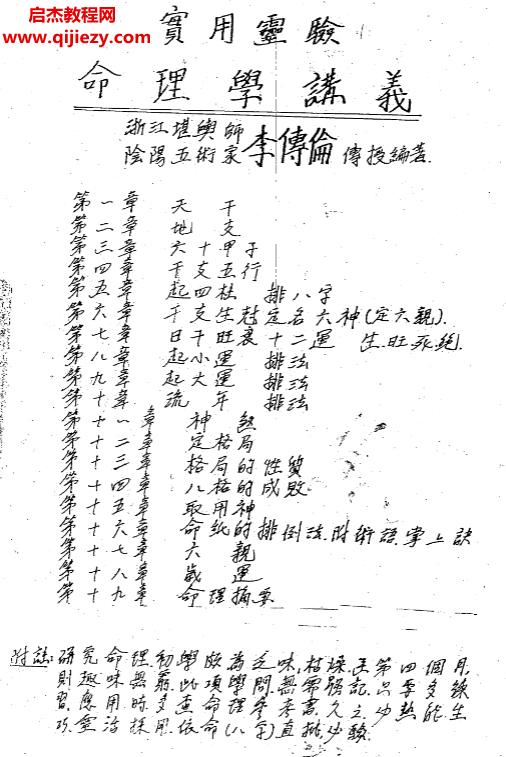 启杰教程网
www.qijiezy.com
實用靈驗
命理學講義
浙江堪輿師
陰陽五術家 李傳倫 傳授編著.
第一章 天干
第二章 地支
第三章 六十甲子
第四章 干支五行
第五章 起四柱 排八字
第六章 干支生尅定名六神(定六親).
第七章 日干旺衰十二運 生.旺.死.絕.
第八章 起小運 排法
第九章 起大運 排法
第十章 流年 排法
第十一章 神煞
第十二章 定格局
第十三章 格局的性質
第十四章 八格的成敗
第十五章 取用神
第十六章 命紙的排倒法.附術語.掌上訣
第十七章 六親
第十八章 歲運
第十九章 命理摘要
附誌:研究命理.初學頗為乏味.枯燥.至第四個月,
則趣味無窮.此項學問.無需強記.只要多練
習.應用時多查命理參考書.久之.少熱能生
巧.靈活採用.依命(八字)直排少錯